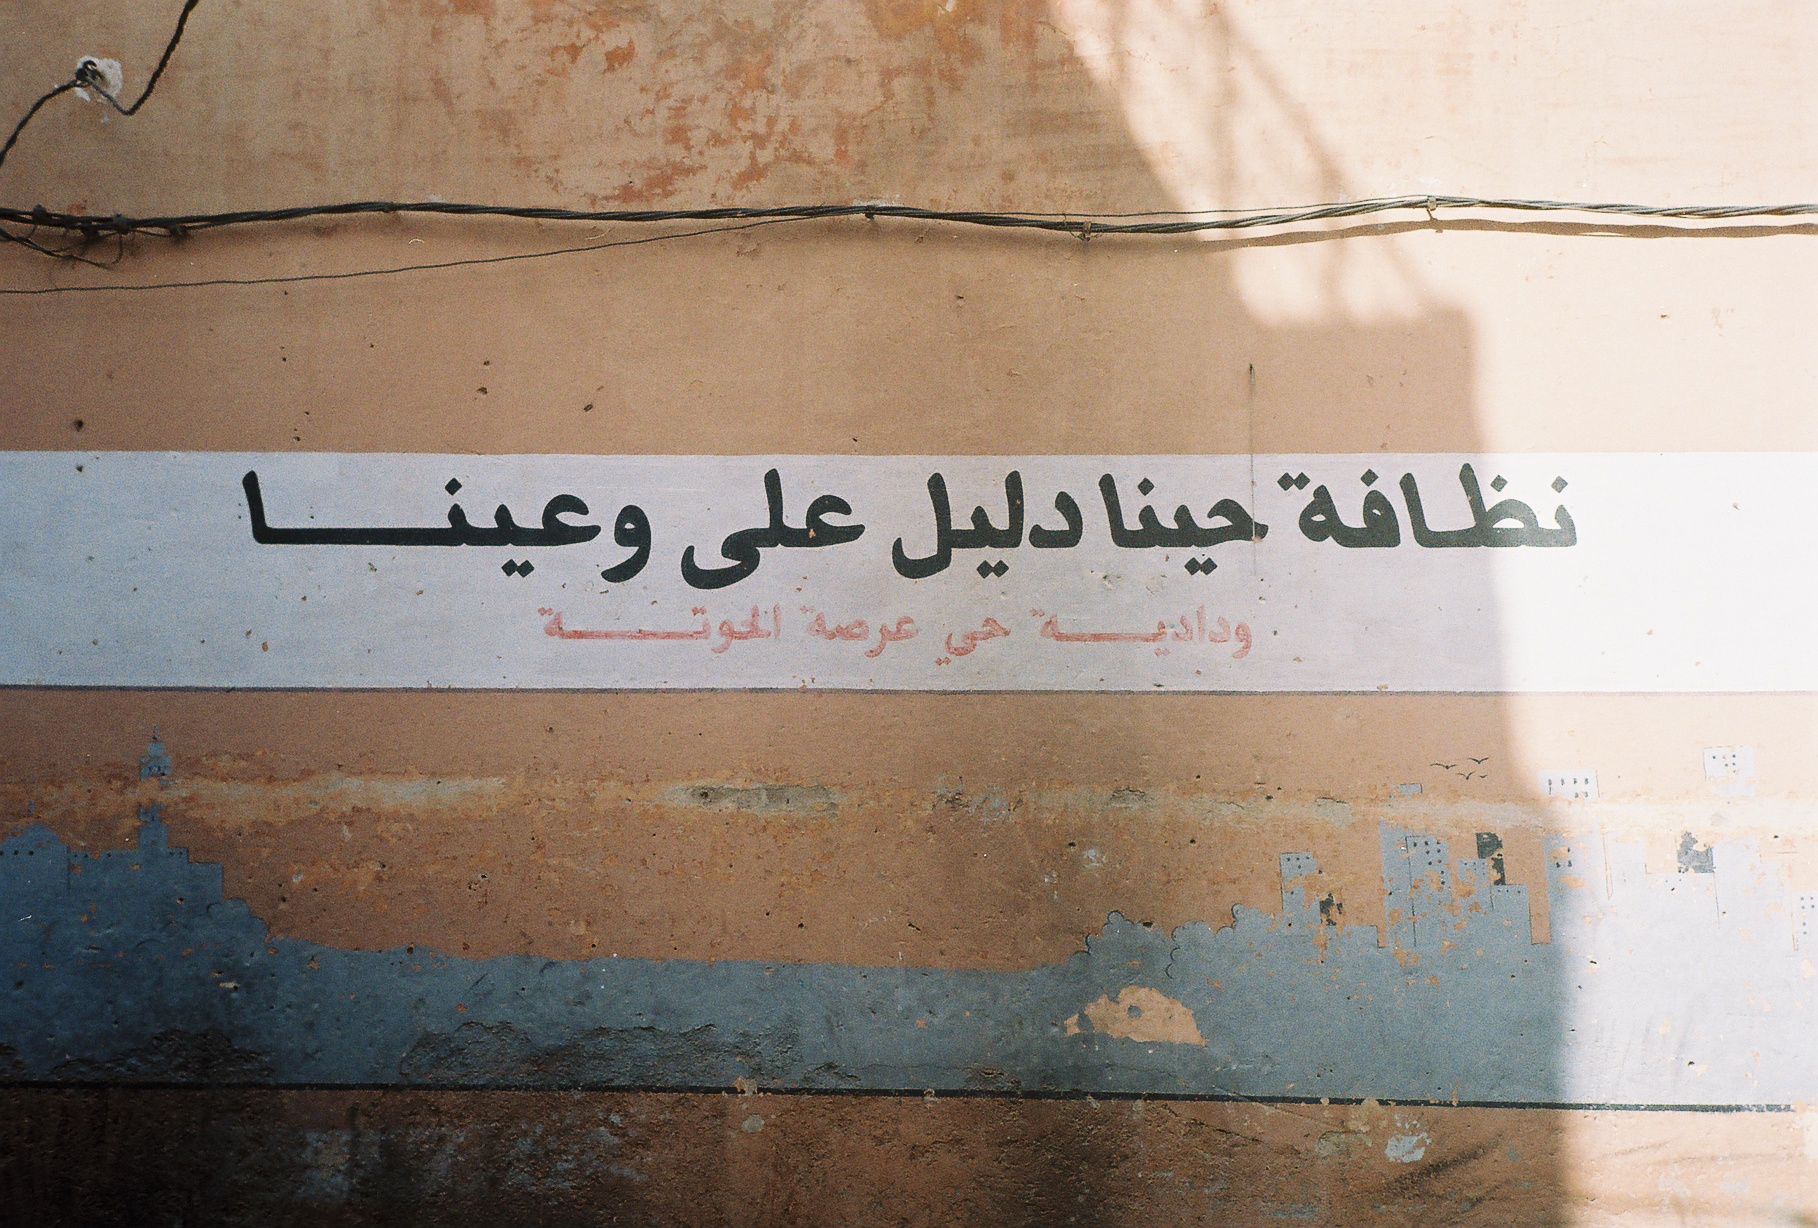 نظافة حينا دليل على وعينا
ودادية حي عرصة الحوتة